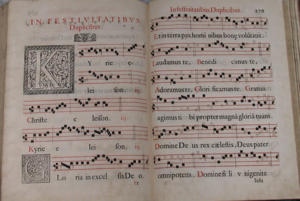 IN FESTIVITATIBVS
Duplicibus.
K
Yrie e
lei son.
Christe e leison.
Kyrie e leison.
G
Loria in excel sis De o.
In festiuitatibus Duplicibus.
Et in terra pax homi nibus bonę volūtatis.
Laudamus te. Benedi cimus te.
Adoramus te. Glori ficamus te. Gratias
agimus ti bi propter magnā gloriā tuam.
Domine De us rex cœlestis, Deus pater
omnipotens. Domine fi li v nigenite